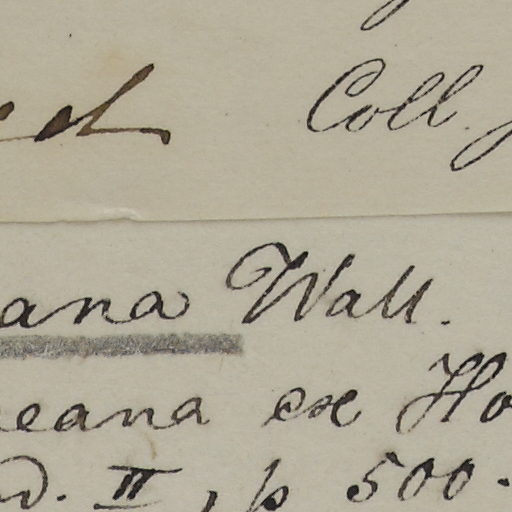 Coll.
ana Wall.
eana ex Ho
d. II, p 500.